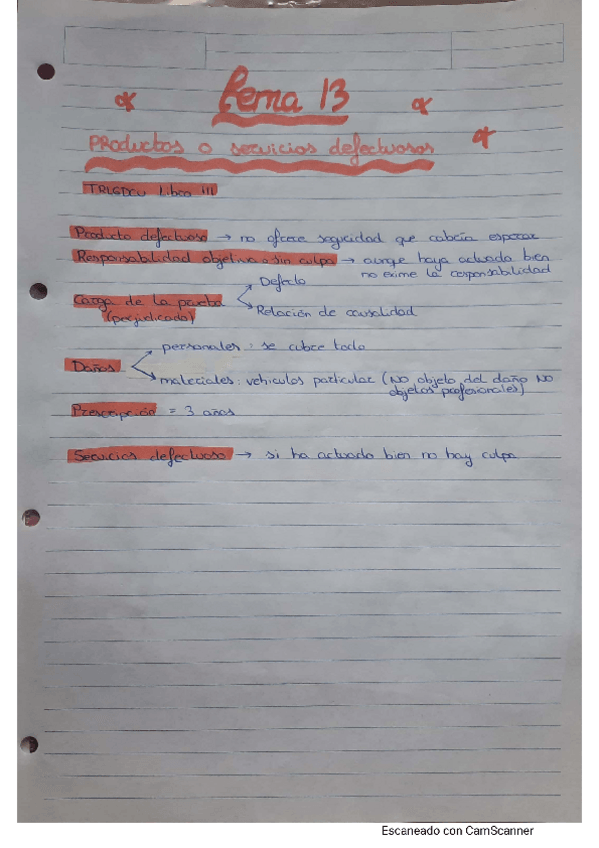 Tema 13
Productos o servicios defectuosos
TRLGDCU Libro III
Producto defectuoso → no ofrece seguridad que cabría esperar
Responsabilidad objetiva o sin culpa → aunque haya actuado bien
no exime la responsabilidad
Carga de la prueba
(perjudicado)
Defecto
Relación de causalidad
Daños
personales: se cubre todo
materiales: vehículos particular (NO objeto del daño NO
objetos profesionales)
Prescripción = 3 años
Servicios defectuoso → si ha actuado bien no hay culpa
Escaneado con CamScanner